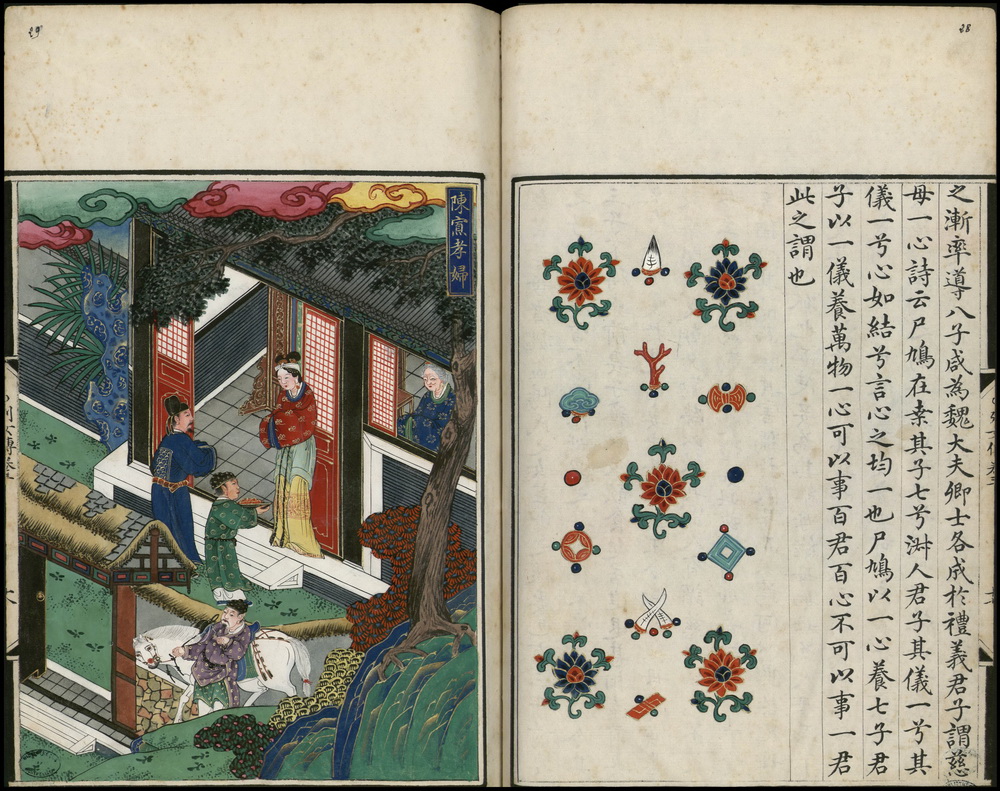 28
之漸率導八子咸為魏大夫卿士各成於禮義君子謂慈
母一心詩云尸鳩在桒其子七兮淑人君子其儀一兮其
儀一兮心如結兮言心之均一也尸鳩以一心養七子君
子以一儀養萬物一心可以事百君百心不可以事一君
此之謂也
29
陳寡孝婦